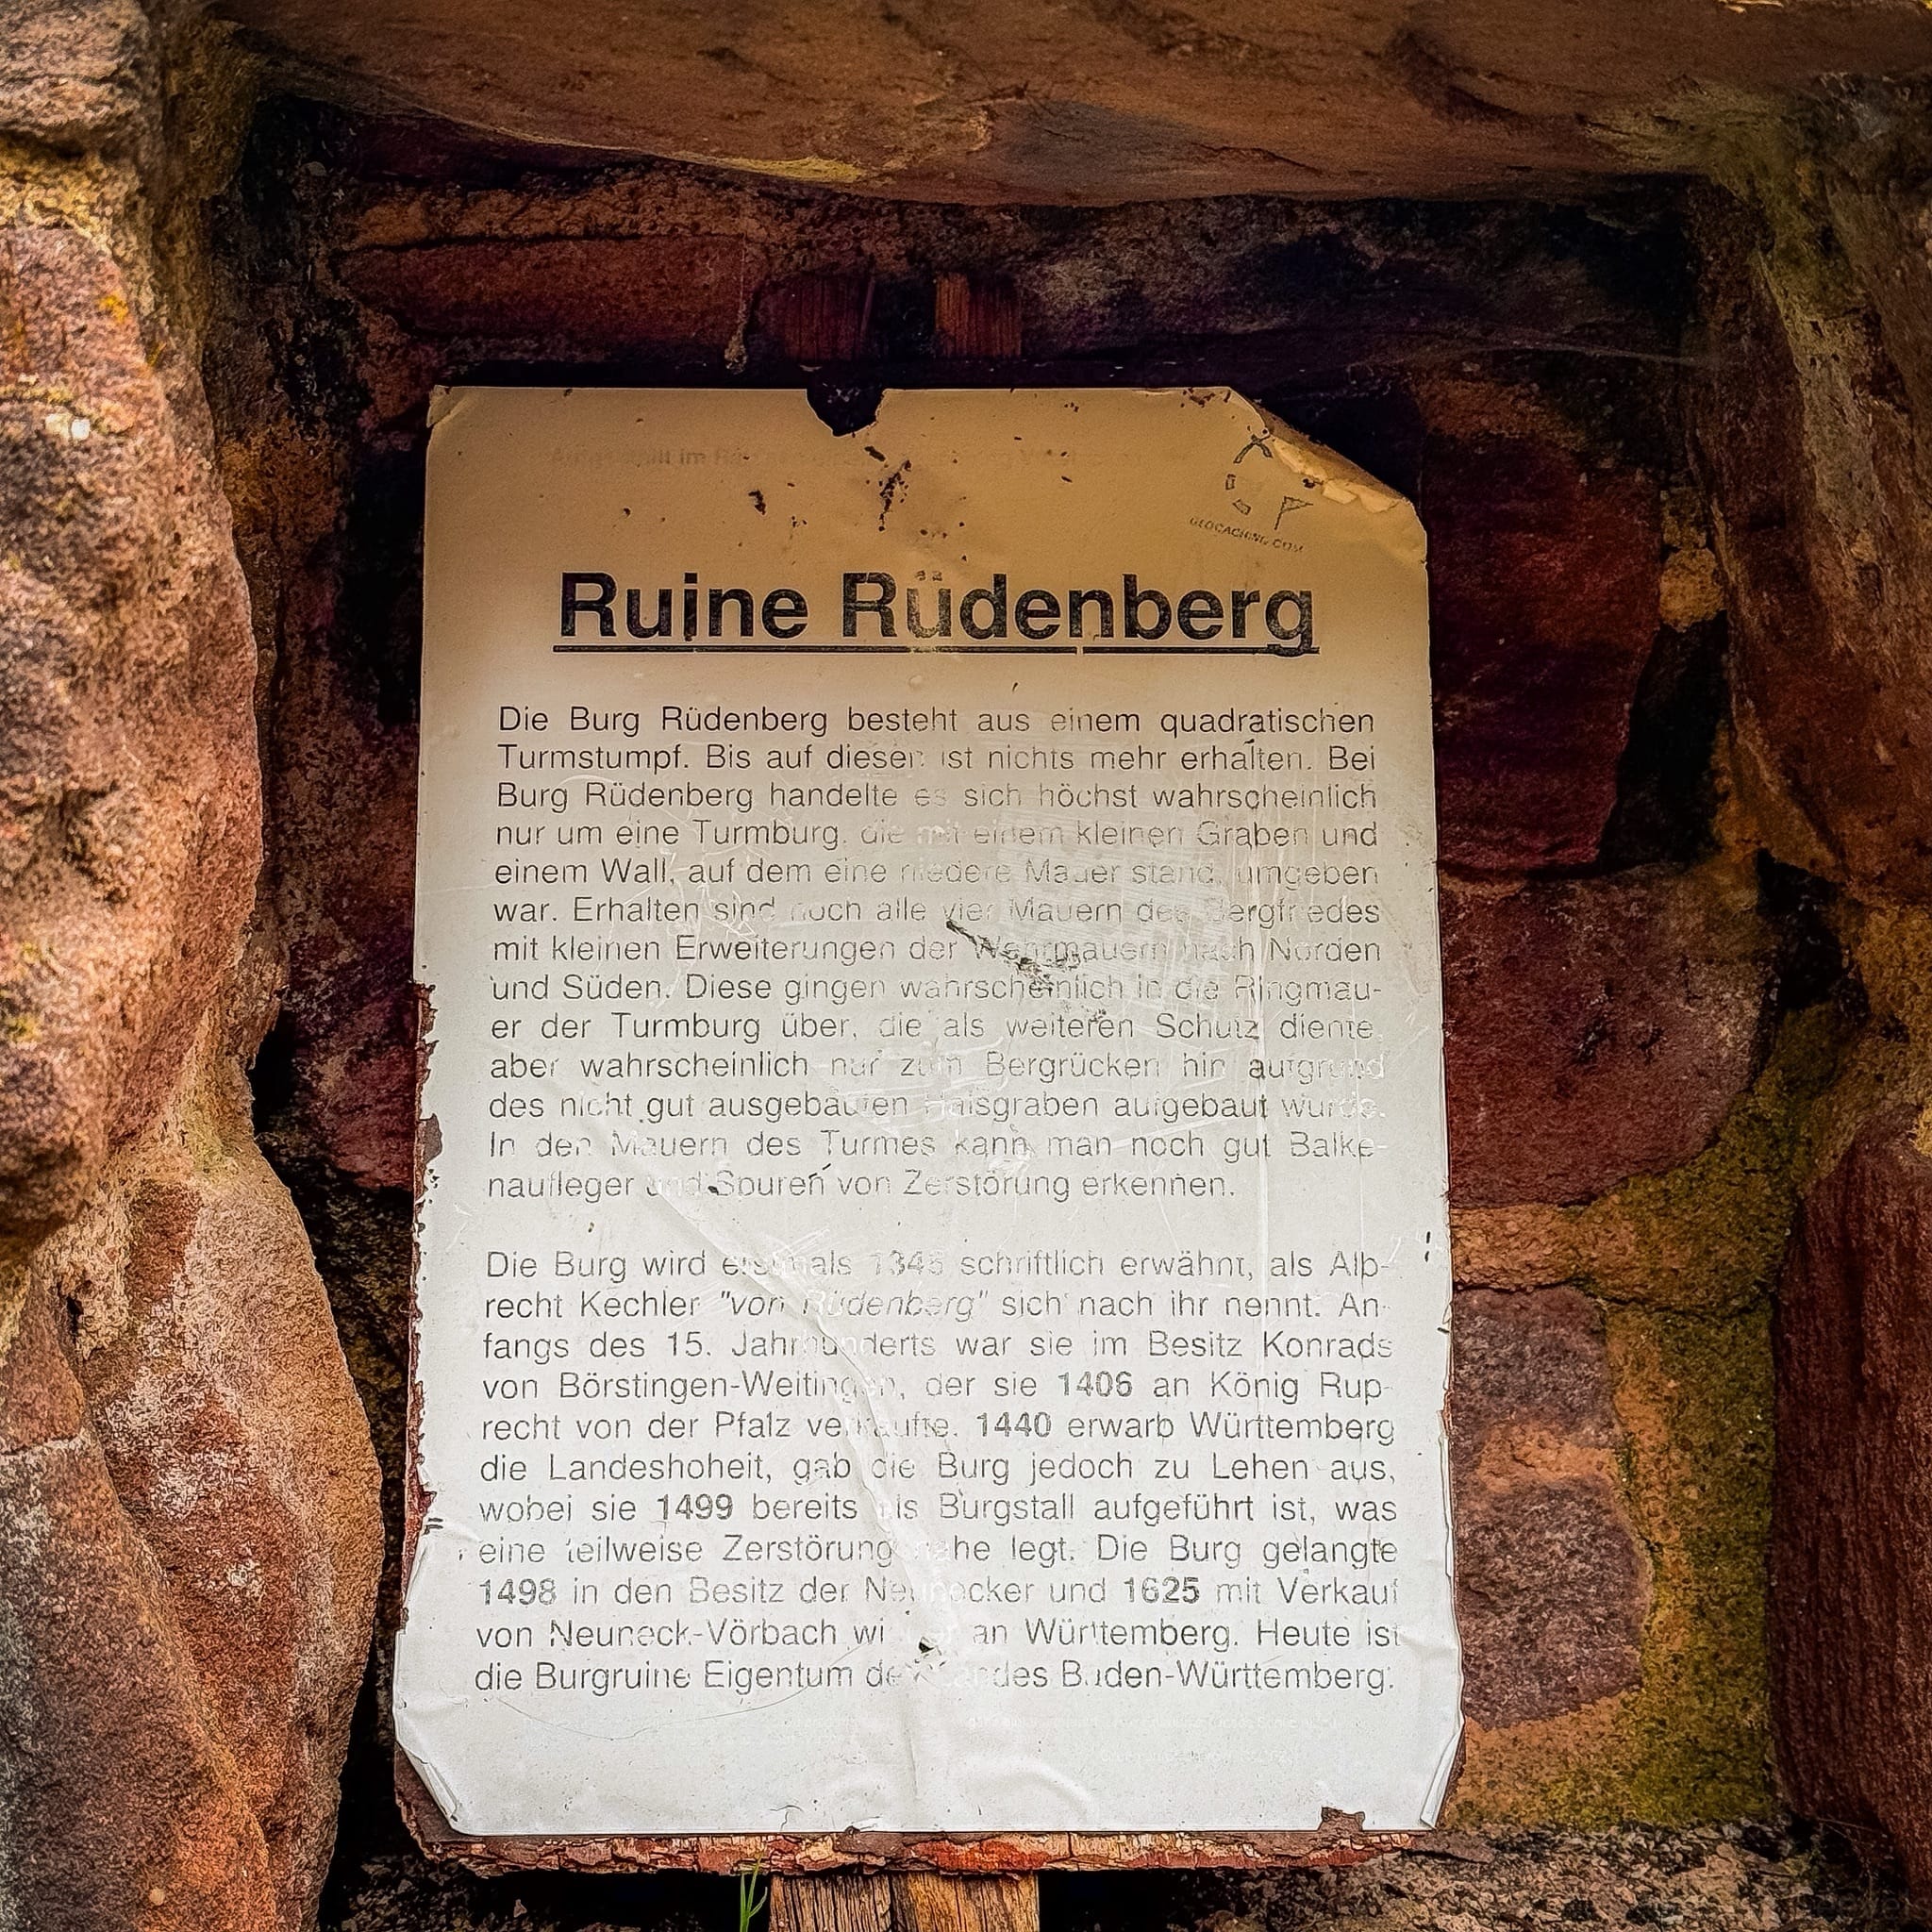 GEOCACHING.COM
Ruine Rüdenberg
Die Burg Rüdenberg besteht aus einem quadratischen
Turmstumpf. Bis auf diesen ist nichts mehr erhalten. Bei
Burg Rüdenberg handelte es sich höchst wahrscheinlich
nur um eine Turmburg, die mit einem kleinen Graben und
einem Wall, auf dem eine niedere Mauer stand, umgeben
war. Erhalten sind noch alle vier Mauern des Bergfriedes
mit kleinen Erweiterungen der Wehrmauern nach Norden
und Süden. Diese gingen wahrscheinlich in die Ringmau-
er der Turmburg über, die als weiteren Schutz diente,
aber wahrscheinlich nur zum Bergrücken hin aufgrund
des nicht gut ausgebauten Halsgraben aufgebaut wurde.
In den Mauern des Turmes kann man noch gut Balke-
naufleger und Spuren von Zerstörung erkennen.
Die Burg wird erstmals schriftlich erwähnt, als Alb-
recht Kechler "von Rüdenberg" sich nach ihr nennt. An-
fangs des 15. Jahrhunderts war sie im Besitz Konrads
von Börstingen-Weitingen, der sie 1406 an König Rup-
recht von der Pfalz verkaufte. 1440 erwarb Württemberg
die Landeshoheit, gab die Burg jedoch zu Lehen aus,
wobei sie 1499 bereits als Burgstall aufgeführt ist, was
eine teilweise Zerstörung nahe legt. Die Burg gelangte
1498 in den Besitz der Neunecker und 1625 mit Verkauf
von Neuneck-Vörbach wieder an Württemberg. Heute ist
die Burgruine Eigentum des Landes Baden-Württemberg.